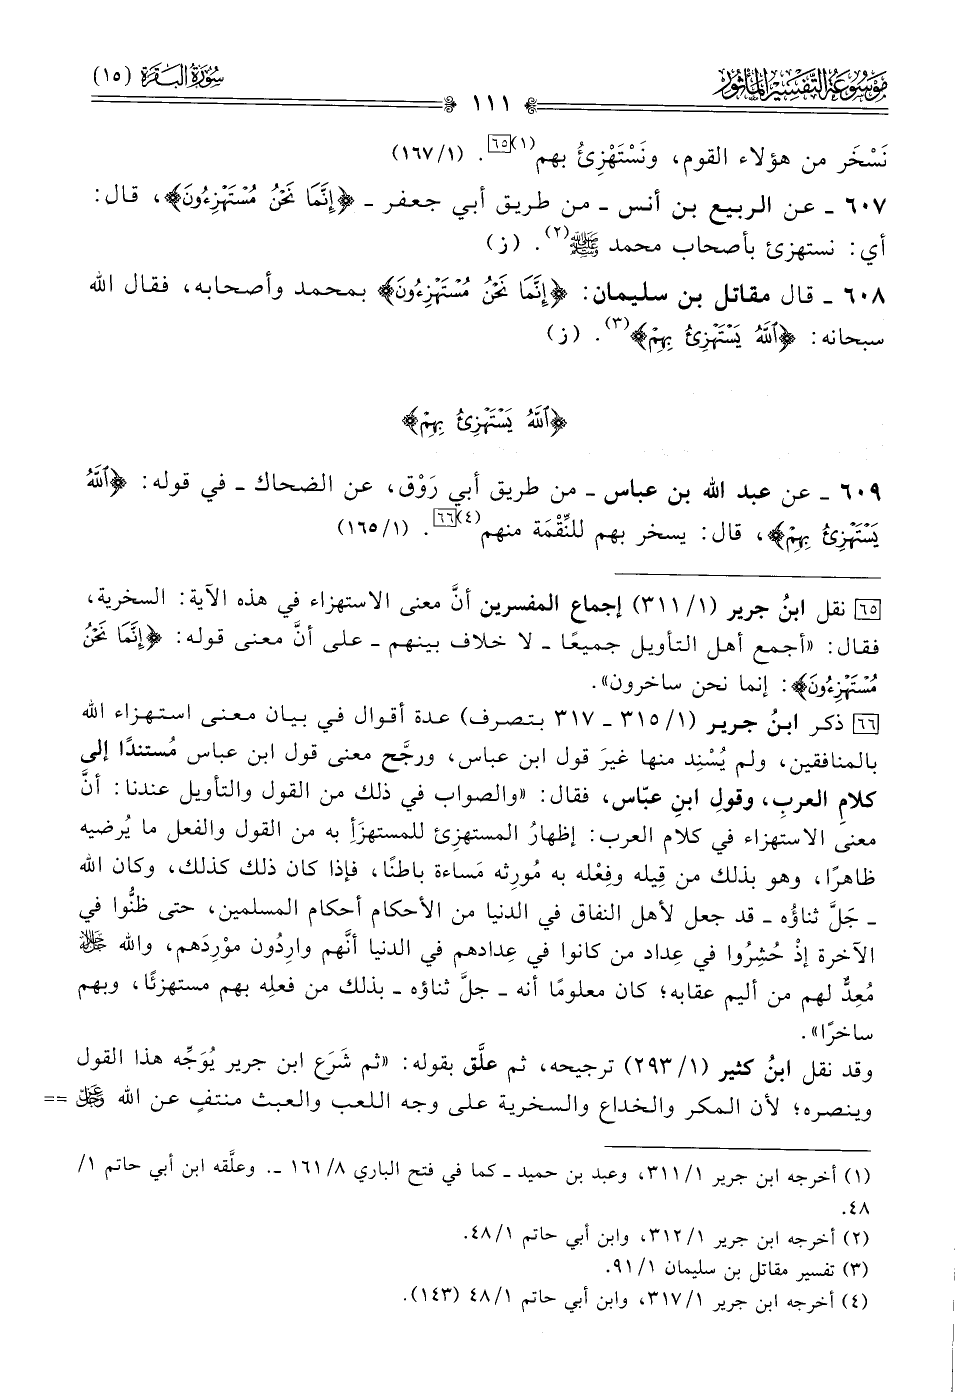 مَوْسُوعَةُ التَّفْسِيرِ المَأْثُورِ
١١١
سُورَةُ البَقَرَةِ (١٥)
نَسْخَر من هؤلاء القوم، ونَسْتَهْزِئُ بهم(١)[٦٥]. (١٦٧/١)
٦٠٧ ـ عن الربيع بن أنس ـ من طريق أبي جعفر ـ ﴿إِنَّمَا نَحْنُ مُسْتَهْزِءُونَ﴾، قال:
أي: نستهزئ بأصحاب محمد ﷺ(٢). (ز)
٦٠٨ ـ قال مقاتل بن سليمان: ﴿إِنَّمَا نَحْنُ مُسْتَهْزِءُونَ﴾ بمحمد وأصحابه، فقال الله
سبحانه: ﴿ٱللَّهُ يَسْتَهْزِئُ بِهِمْ﴾(٣). (ز)
﴿ٱللَّهُ يَسْتَهْزِئُ بِهِمْ﴾
٦٠٩ ـ عن عبد الله بن عباس ـ من طريق أبي رَوْق، عن الضحاك ـ في قوله: ﴿ٱللَّهُ
يَسْتَهْزِئُ بِهِمْ﴾، قال: يسخر بهم للنِّقْمَة منهم(٤)[٦٦]. (١٦٥/١)
[٦٥] نقل ابنُ جرير (٣١١/١) إجماع المفسرين أنَّ معنى الاستهزاء في هذه الآية: السخرية،
فقال: «أجمع أهل التأويل جميعًا ـ لا خلاف بينهم ـ على أنَّ معنى قوله: ﴿إِنَّمَا نَحْنُ
مُسْتَهْزِءُونَ﴾: إنما نحن ساخرون».
[٦٦] ذكر ابنُ جرير (٣١٥/١ ـ ٣١٧ بتصرف) عدة أقوال في بيان معنى استهزاء الله
بالمنافقين، ولم يُسْنِد منها غيرَ قول ابن عباس، ورجَّح معنى قول ابن عباس مُستندًا إلى
كلامِ العرب، وقولِ ابنِ عبّاس، فقال: «والصواب في ذلك من القول والتأويل عندنا: أنَّ
معنى الاستهزاء في كلام العرب: إظهارُ المستهزِئ للمستهزَأ به من القول والفعل ما يُرضيه
ظاهرًا، وهو بذلك من قِيله وفِعْله به مُورِثه مَساءة باطنًا، فإذا كان ذلك كذلك، وكان الله
ـ جَلَّ ثناؤُه ـ قد جعل لأهل النفاق في الدنيا من الأحكام أحكام المسلمين، حتى ظنُّوا في
الآخرة إذْ حُشِرُوا في عِداد من كانوا في عِدادهم في الدنيا أنَّهم وارِدُون موْرِدَهم، والله ﷻ
مُعِدٌّ لهم من أليم عقابه؛ كان معلومًا أنه ـ جلَّ ثناؤه ـ بذلك من فعلِه بهم مستهزئًا، وبهم
ساخرًا».
وقد نقل ابنُ كثير (٢٩٣/١) ترجيحه، ثم علَّق بقوله: «ثم شَرَع ابن جرير يُوَجِّه هذا القول
وينصره؛ لأن المكر والخداع والسخرية على وجه اللعب والعبث منتفٍ عن الله عَزَّوَجَلَّ ==
(١) أخرجه ابن جرير ٣١١/١، وعبد بن حميد ـ كما في فتح الباري ١٦١/٨ ـ. وعلَّقه ابن أبي حاتم ١/
٤٨.
(٢) أخرجه ابن جرير ٣١٢/١، وابن أبي حاتم ٤٨/١.
(٣) تفسير مقاتل بن سليمان ٩١/١.
(٤) أخرجه ابن جرير ٣١٧/١، وابن أبي حاتم ٤٨/١ (١٤٣).